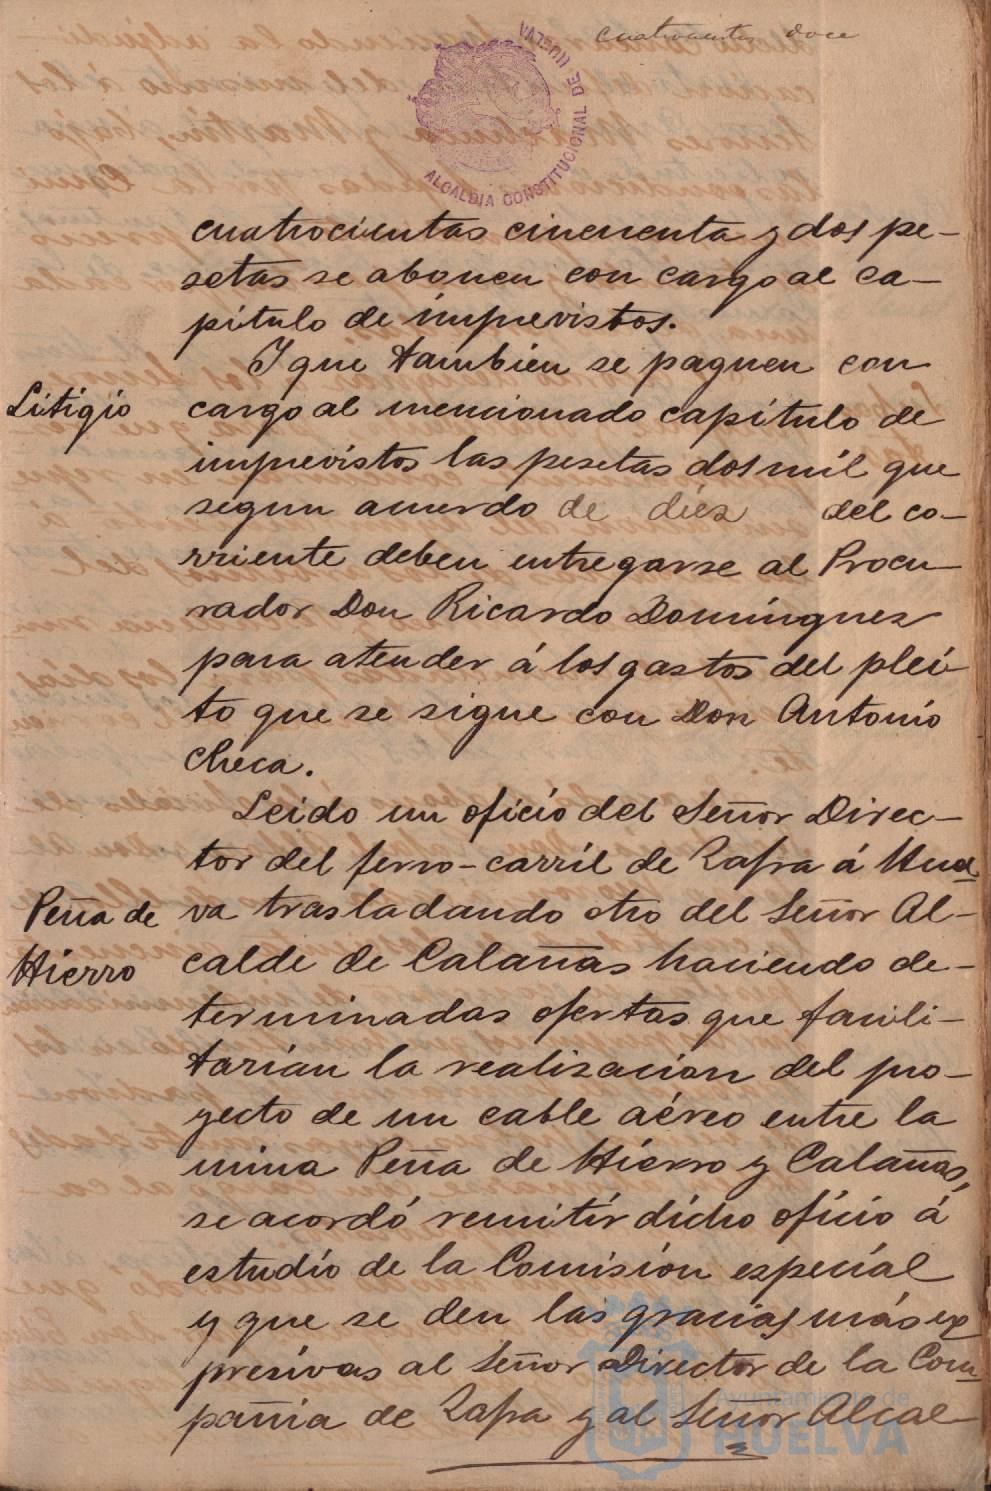 cuatrocientos doce
ALCALDIA CONSTITUCIONAL DE HUELVA
cuatrocientas cincuenta y dos pe-
setas se abonen con cargo al ca-
pítulo de imprevistos.
Y que tambien se paguen con
Litigio
cargo al mencionado capítulo de
imprevistos las pesetas dos mil que
segun acuerdo de diez del co-
rriente deben entregarse al Procu-
rador Don Ricardo Domínguez
para atender á los gastos del plei-
to que se sigue con Don Antonio
Checa.
Leido un oficio del Señor Direc-
tor del ferro-carril de Zafra á Huel-
Peña de
Hierro
va trasladando otro del Señor Al-
calde de Calañas haciendo de-
terminadas ofertas que facili-
tarían la realizacion del pro-
yecto de un cable aéreo entre la
mina Peña de Hierro y Calañas,
se acordó remitir dicho oficio á
estudio de la Comisión especial
y que se den las gracias más ex
presivas al Señor Director de la Com-
pañia de Zafra y al Señor Alcal-
Ayuntamiento de
HUELVA